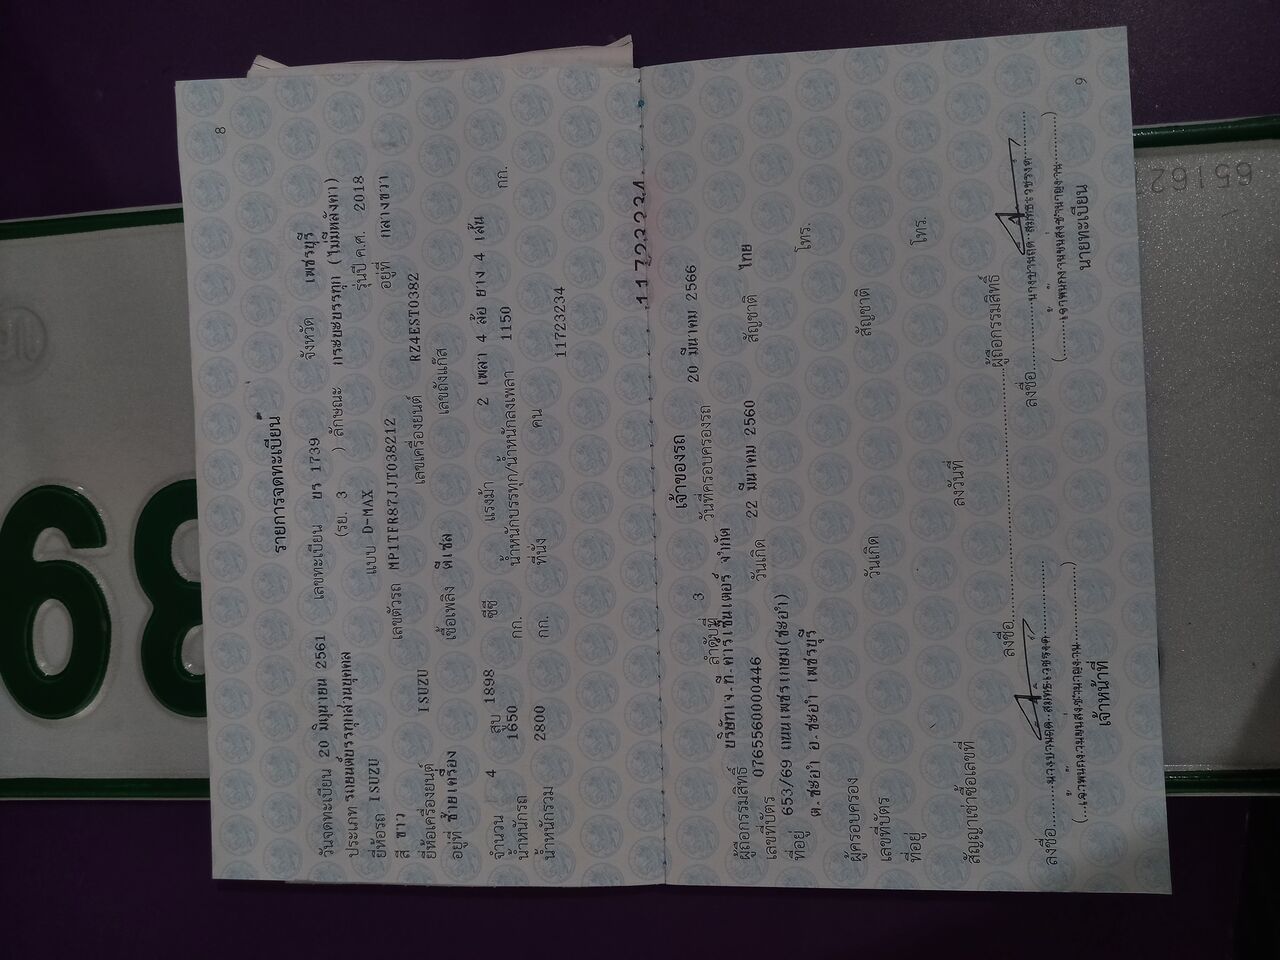 8
รายการจดทะเบียน
วันจดทะเบียน 20 มิถุนายน 2561 เลขทะเบียน บร 1739 จังหวัด เพชรบุรี
ประเภท รถยนต์บรรทุกส่วนบุคคล (รย. 3 ) ลักษณะ กระบะบรรทุก (ไม่มีหลังคา)
ยี่ห้อรถ ISUZU แบบ D-MAX รุ่นปี ค.ศ. 2018
สี ขาว เลขตัวรถ MP1TFR87JJT038212 อยู่ที่ กลางขวา
ยี่ห้อเครื่องยนต์ ISUZU เลขเครื่องยนต์ RZ4EST0382
อยู่ที่ ซ้ายเครื่อง เชื้อเพลิง ดีเซล เลขถังแก๊ส
จำนวน 4 สูบ 1898 ซีซี แรงม้า 2 เพลา 4 ล้อ ยาง 4 เส้น
น้ำหนักรถ 1650 กก. น้ำหนักบรรทุก/น้ำหนักลงเพลา 1150 กก.
น้ำหนักรวม 2800 กก. ที่นั่ง คน
11723234
11723234
9
เจ้าของรถ
ลำดับที่ 3 วันที่ครอบครองรถ 20 มีนาคม 2566
ผู้ถือกรรมสิทธิ์ บริษัทเจ.ที.คาร์เซ็นเตอร์ จำกัด
เลขที่บัตร 0765560000446 วันเกิด 22 มีนาคม 2560 สัญชาติ ไทย
ที่อยู่ 653/69 ถนนเพชรเกษม(ชะอำ)
ต.ชะอำ อ.ชะอำ เพชรบุรี โทร.
ผู้ครอบครอง
เลขที่บัตร วันเกิด สัญชาติ
ที่อยู่
โทร.
สัญญาเช่าซื้อเลขที่ ลงวันที่
ลงชื่อ ผู้ถือกรรมสิทธิ์
ลงชื่อ ลงชื่อ
(เจ้าพนักงานขนส่งชำนาญงาน) (เจ้าพนักงานขนส่งชำนาญงาน)
เจ้าหน้าที่ นายทะเบียน
68
65162